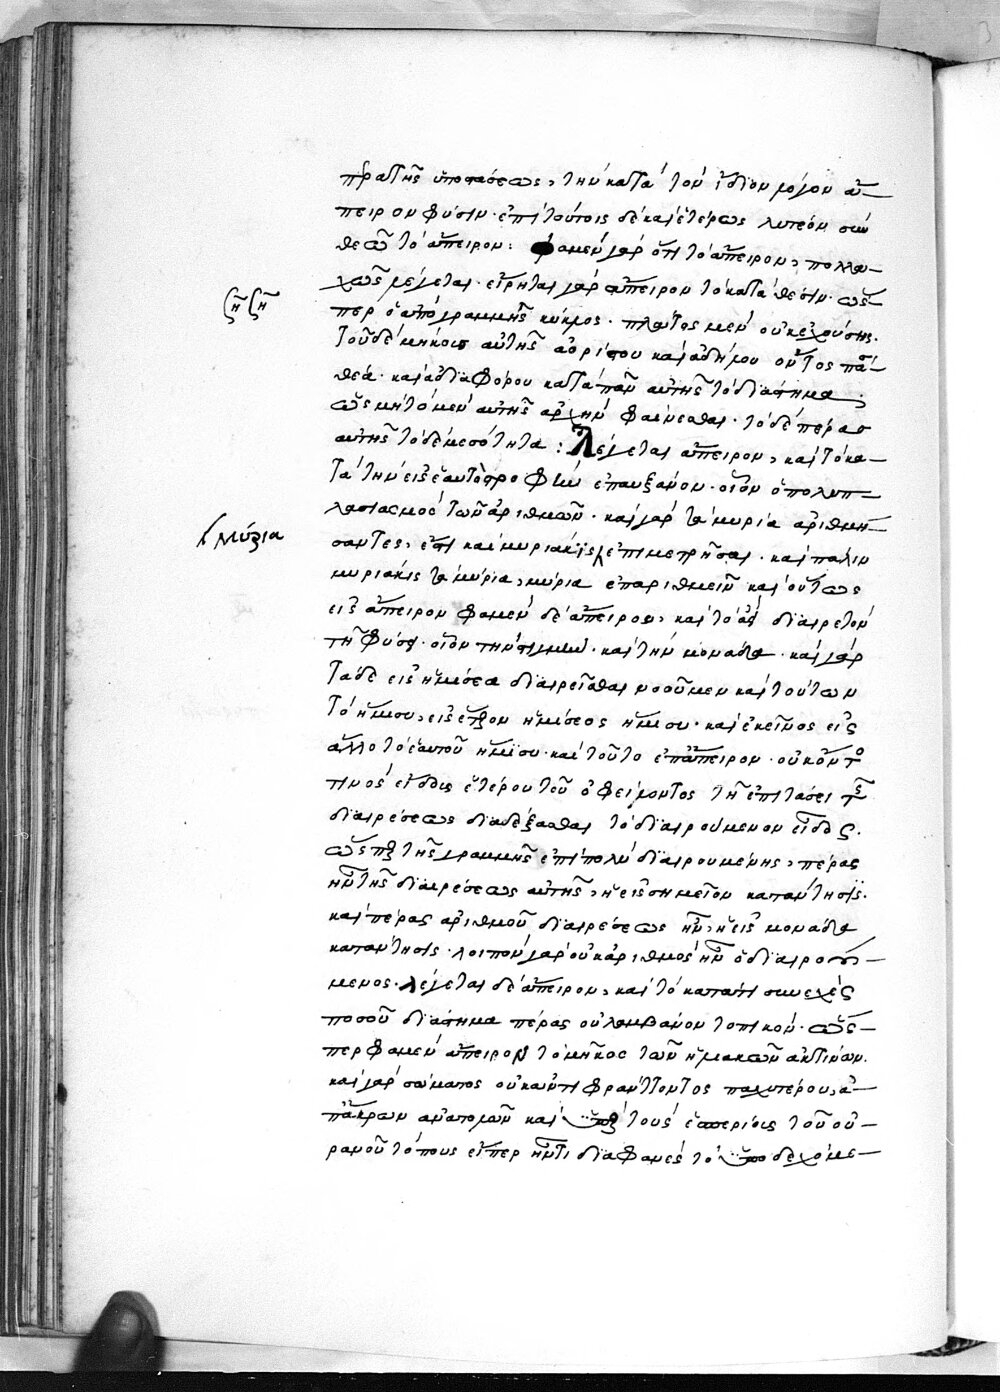 πρώτης ὑποστάσεως, τὴν κατὰ τὸν ἴδιον λόγον ἄ-
πειρον φύσιν. ἐπὶ τούτοις δὲ καὶ ἑτέρως λυτέον σὺν
θεῷ τὸ ἄπειρον: φαμὲν γὰρ ὅτι τὸ ἄπειρον, πολλα-
χῶς λέγεται. εἴρηται γὰρ ἄπειρον τὸ κατὰ θέσιν. ὥς-
περ ὁ ἀπὸ γραμμῆς κύκλος. πλάτος μὲν οὐκ ἐχούσης.
τοῦ δὲ μήκους αὐτῆς ἀορίστου καὶ ἀδήλου ὄντος πά-
θεϊ. καὶ ἀδιαφόρου κατὰ πᾶν αὐτῆς τὸ διάστημα,
ὡς μὴ τὸ μὲν αὐτῆς ἀρχὴν φαίνεσθαι. τὸ δὲ πέρας
αὐτῆς τὸ δὲ μεσότητα: Λέγεται ἄπειρον, καὶ τὸ κα-
τὰ τὴν εἰς ἑαυτὸ στροφὴν ἐπαυξάνον. οἷον ὁ πολυπ-
λασιασμὸς τῶν ἀριθμῶν. καὶ γὰρ τὰ μυρία ἀριθμή-
σαντες, ἔστι καὶ μυριάκις ἐπιμετρῆσαι. καὶ πάλιν
μυριάκις τὰ μύρια, μύρια ἐπαριθμεῖν καὶ οὕτως
εἰς ἄπειρον φαμὲν δὲ ἄπειρον, καὶ τὸ ἀεὶ διαιρετὸν
τῇ φύσει. οἷον τὴν στιγμὴν. καὶ τὴν μονάδα. καὶ γὰρ
τάδε εἰς ἡμίσεα διαιρεῖσθαι νοοῦμεν καὶ τούτων
τὸ ἥμισυ, εἰς ἕτερον ἡμίσεος ἥμισυ. καὶ ἐκεῖνος εἰς
ἄλλο τὸ ἑαυτοῦ ἥμισυ. καὶ τοῦτο ἐπ' ἄπειρον. οὐκ ὄντος
τινὸς εἴδους ἑτέρου τοῦ ὀφείλοντος τῇ ἐπιτάσει τῆς
διαιρέσεως διαδέξασθαι τὸ διαιρούμενον εἶδος.
ὥσπερ τῆς γραμμῆς ἐπὶ πολὺ διαιρουμένης, πέρας
ἦν τῆς διαιρέσεως αὐτῆς, ἡ εἰς σημεῖον κατάντησις.
καὶ πέρας ἀριθμοῦ διαιρέσεως ἦν, ἡ εἰς μονάδα
κατάντησις. λοιπὸν γὰρ οὐκ ἀριθμὸς ἦν ὁ διαιρού-
μενος. λέγεται δὲ ἄπειρον, καὶ τὸ κατά τι συνεχὲς
ποσοῦ διάστημα πέρας οὐ λαμβάνον τοπικόν. ὥς-
περ φαμὲν ἄπειρον τὸ μῆκος τῶν ἡλιακῶν ἀκτίνων.
καὶ γὰρ σώματος οὐκ ἀντιφράττοντος παχυτέρου, ἀ-
π' ἄκρων ἀνατολῶν καὶ τοὺς ἑσπερίους τοῦ οὐ-
ρανοῦ τόπους εἴπερ ἦν τι διαφανὲς τὸ ὑποδεχόμε-
μύρια